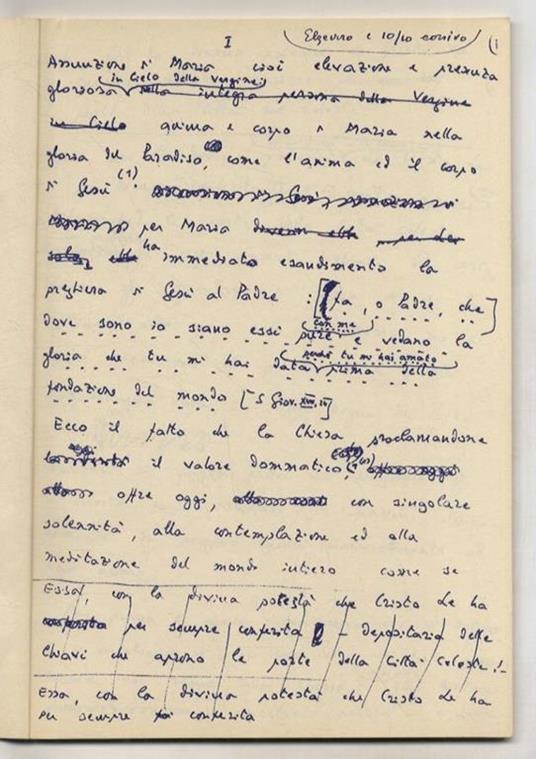 I
Elzeviro c 10/10 corsivo
(1
Assunzione di Maria cioè elevazione e presenza
in Cielo della Vergine:
gloriosa nella integra persona della Vergine
in Cielo anima e corpo di Maria nella
gloria del Paradiso, come l'anima ed il corpo
di Gesù (1).
per Maria
ha immediato esaudimento la
preghiera di Gesù al Padre : [fa, o Padre, che]
con me
dove sono io siano essi pure e vedano la
perché tu m'hai amato
gloria che tu mi hai data prima della
fondazione del mondo [S Giov. XVII, 24]
Ecco il fatto che la Chiesa, proclamandone
oggi il valore dommatico,
offre oggi, con singolare
solennità, alla contemplazione ed alla
meditazione del mondo intiero come se
Essa, con la divina potestà che Cristo Le ha
per sempre conferita – depositaria delle
Chiavi che aprono le porte della Città Celeste! –
Essa, con la divina potestà che Cristo Le ha
per sempre conferita